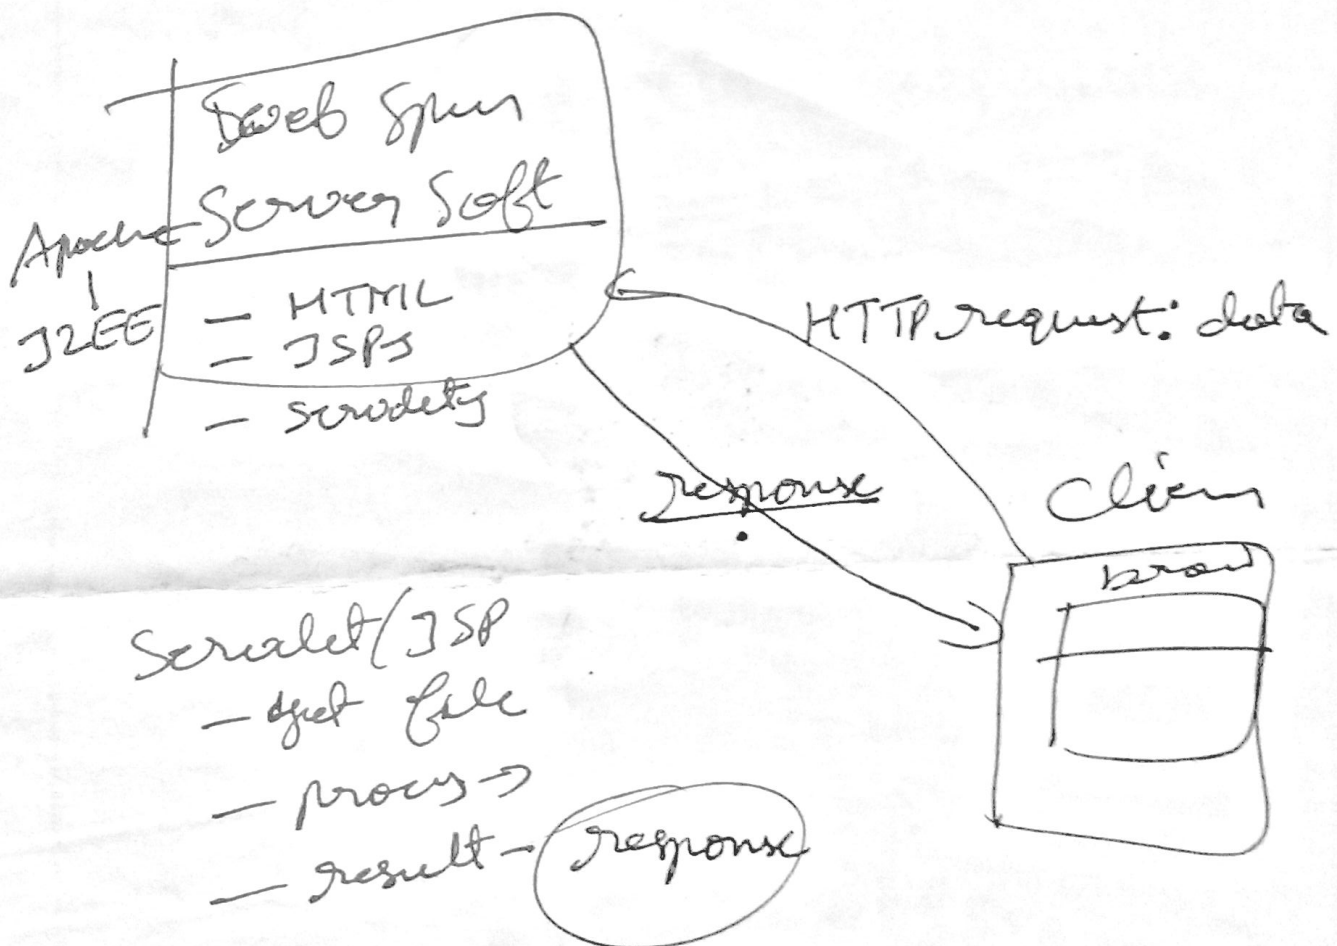 Web
Server Soft
Apache
J2EE
- HTML
- JSPs
- servlets
HTTP request: data
response
Client
brow
Servalet/JSP
- get
- process →
- result - response